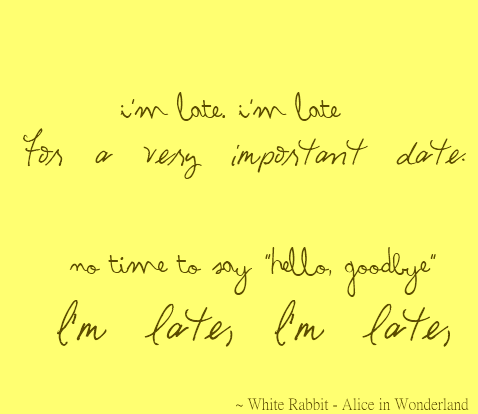 i'm late. i'm late
for a very important date.
no time to say "hello, goodbye"
I'm late, I'm late,
~ White Rabbit - Alice in Wonderland